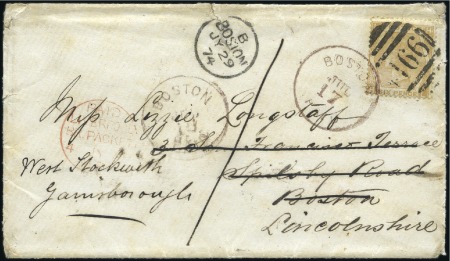 B
BOSTON
JY 29
74
BOSTON
JUL
17
166
BOSTON
Miss Lizzie Longstaff
Francis Terrace
Spilsby Road
Boston
Lincolnshire
West Stockwith
Gainsborough